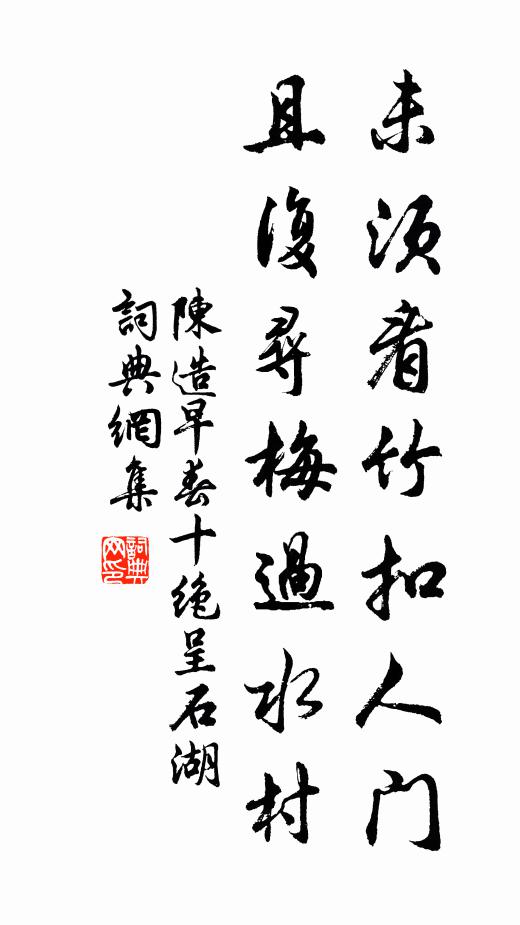 未須看竹扣人門
且復尋梅過水村
陳造早春十絕呈石湖
詞典網集
詞典網印